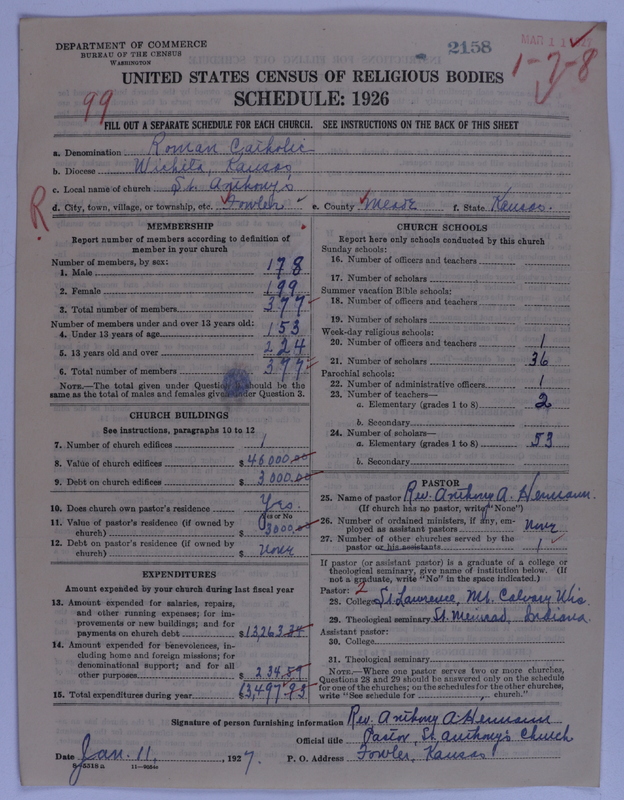 DEPARTMENT OF COMMERCE
BUREAU OF THE CENSUS
WASHINGTON
2158
MAR 11
1-7-8
UNITED STATES CENSUS OF RELIGIOUS BODIES
99
SCHEDULE: 1926
FILL OUT A SEPARATE SCHEDULE FOR EACH CHURCH. SEE INSTRUCTIONS ON THE BACK OF THIS SHEET
a. Denomination Roman Catholic
b. Diocese Wichita, Kansas
c. Local name of church St. Anthony's
R
d. City, town, village, or township, etc. Fowler e. County Meade f. State Kansas.
MEMBERSHIP
Report number of members according to definition of
member in your church
Number of members, by sex:
1. Male 178
2. Female 199
3. Total number of members 377
Number of members under and over 13 years old:
4. Under 13 years of age 153
5. 13 years old and over 224
6. Total number of members 377
NOTE.—The total given under Question 6 should be the
same as the total of males and females given under Question 3.
CHURCH BUILDINGS
See instructions, paragraphs 10 to 12
7. Number of church edifices 1
8. Value of church edifices $ 46000.00
9. Debt on church edifices $ 3000.00
10. Does church own pastor's residence Yes.
Yes or No
11. Value of pastor's residence (if owned by
church) $ 3000.00
12. Debt on pastor's residence (if owned by
church) $ None
EXPENDITURES
Amount expended by your church during last fiscal year
13. Amount expended for salaries, repairs,
and other running expenses; for im-
provements or new buildings; and for
payments on church debt $ 13,263.34
14. Amount expended for benevolences, in-
cluding home and foreign missions; for
denominational support; and for all
other purposes $ 234.59
15. Total expenditures during year 13,497.93
CHURCH SCHOOLS
Report here only schools conducted by this church
Sunday schools:
16. Number of officers and teachers
17. Number of scholars
Summer vacation Bible schools:
18. Number of officers and teachers
19. Number of scholars
Week-day religious schools:
20. Number of officers and teachers 1
21. Number of scholars 36
Parochial schools:
22. Number of administrative officers 1
23. Number of teachers—
a. Elementary (grades 1 to 8) 2
b. Secondary
24. Number of scholars—
a. Elementary (grades 1 to 8) 53
b. Secondary
PASTOR
25. Name of pastor Rev. Anthony A. Hermann.
(If church has no pastor, write "None")
26. Number of ordained ministers, if any, em-
ployed as assistant pastors None
27. Number of other churches served by the
pastor or his assistants 1
If pastor (or assistant pastor) is a graduate of a college or
theological seminary, give name of institution below. (If
not a graduate, write "No" in the space indicated.)
Pastor: 2
28. College St. Lawrence, Mt. Calvary Wis
29. Theological seminary St. Meinrad, Indiana.
Assistant pastor:
30. College
31. Theological seminary
NOTE.—Where one pastor serves two or more churches,
Questions 28 and 29 should be answered only on the schedule
for one of the churches; on the schedules for the other churches,
write "See schedule for church."
Signature of person furnishing information Rev. Anthony A. Hermann
Official title Pastor, St. Anthony's Church
Date Jan. 11, 1927. P. O. Address Fowler, Kansas
8-5318a 11-9554a